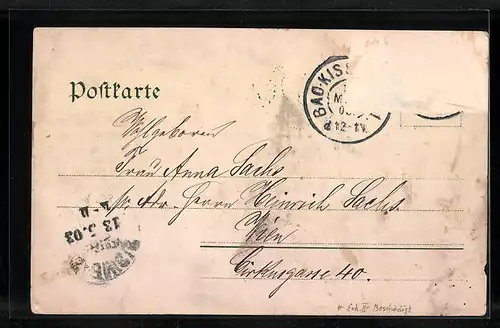 Postkarte
BAD-KISS
12-1 N
Wohlgeboren
Frau Anna Sachs
pr. Adr. Herrn Heinrich Sachs
Wien
Cirkusgasse 40.
13.5.03
* Erh. II Beschädigt